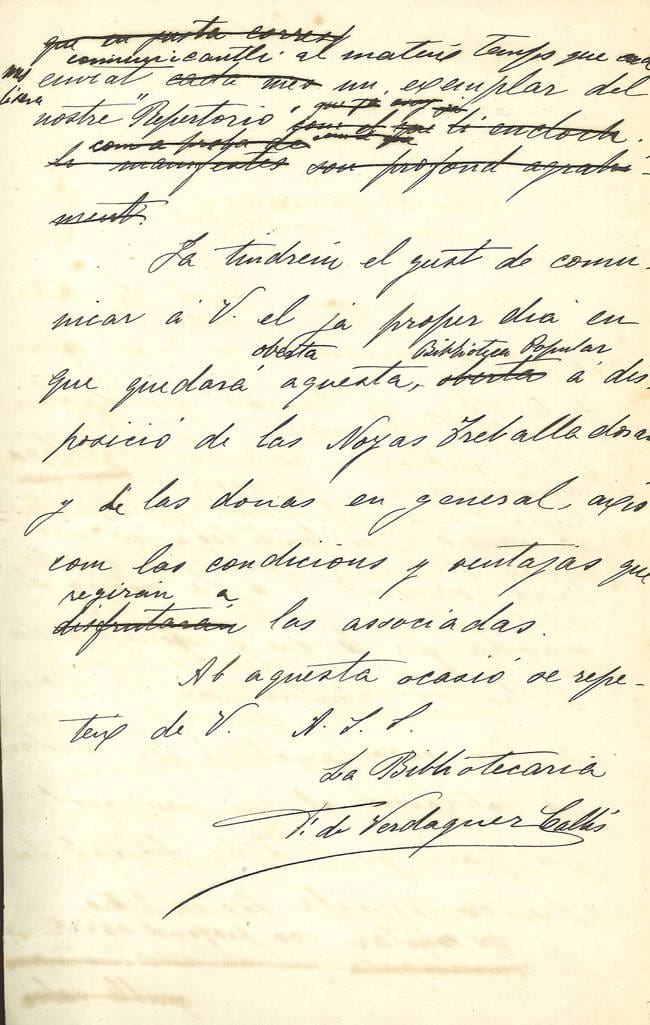 que en justa corres
comunicantli al mateix temps que
enviat cada mes un exemplar del
nostre "Repertorio"
com el que li encloch.
com a proba de
li manifestes son profond agrahi-
ment.
Ja tindrem el gust de comu-
nicar á V. el ja proper dia en
oberta Biblioteca Popular
que quedará aquesta, oberta á dis-
posició de las Noyas Treballadoras
y de las donas en general, axis
com las condicions y ventajas que
regirán a
disfrutarán las associadas.
Ab aquesta ocasió se repe-
teix de V. A. S. S.
La Bibliotecaria
F. de Verdaguer Callís